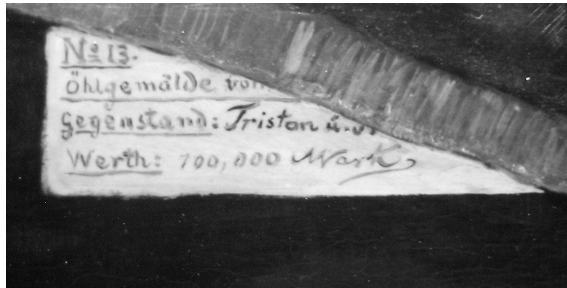 No 13.
Öhlgemälde von
Gegenstand: Tristan u.
Werth: 100,000 Mark,